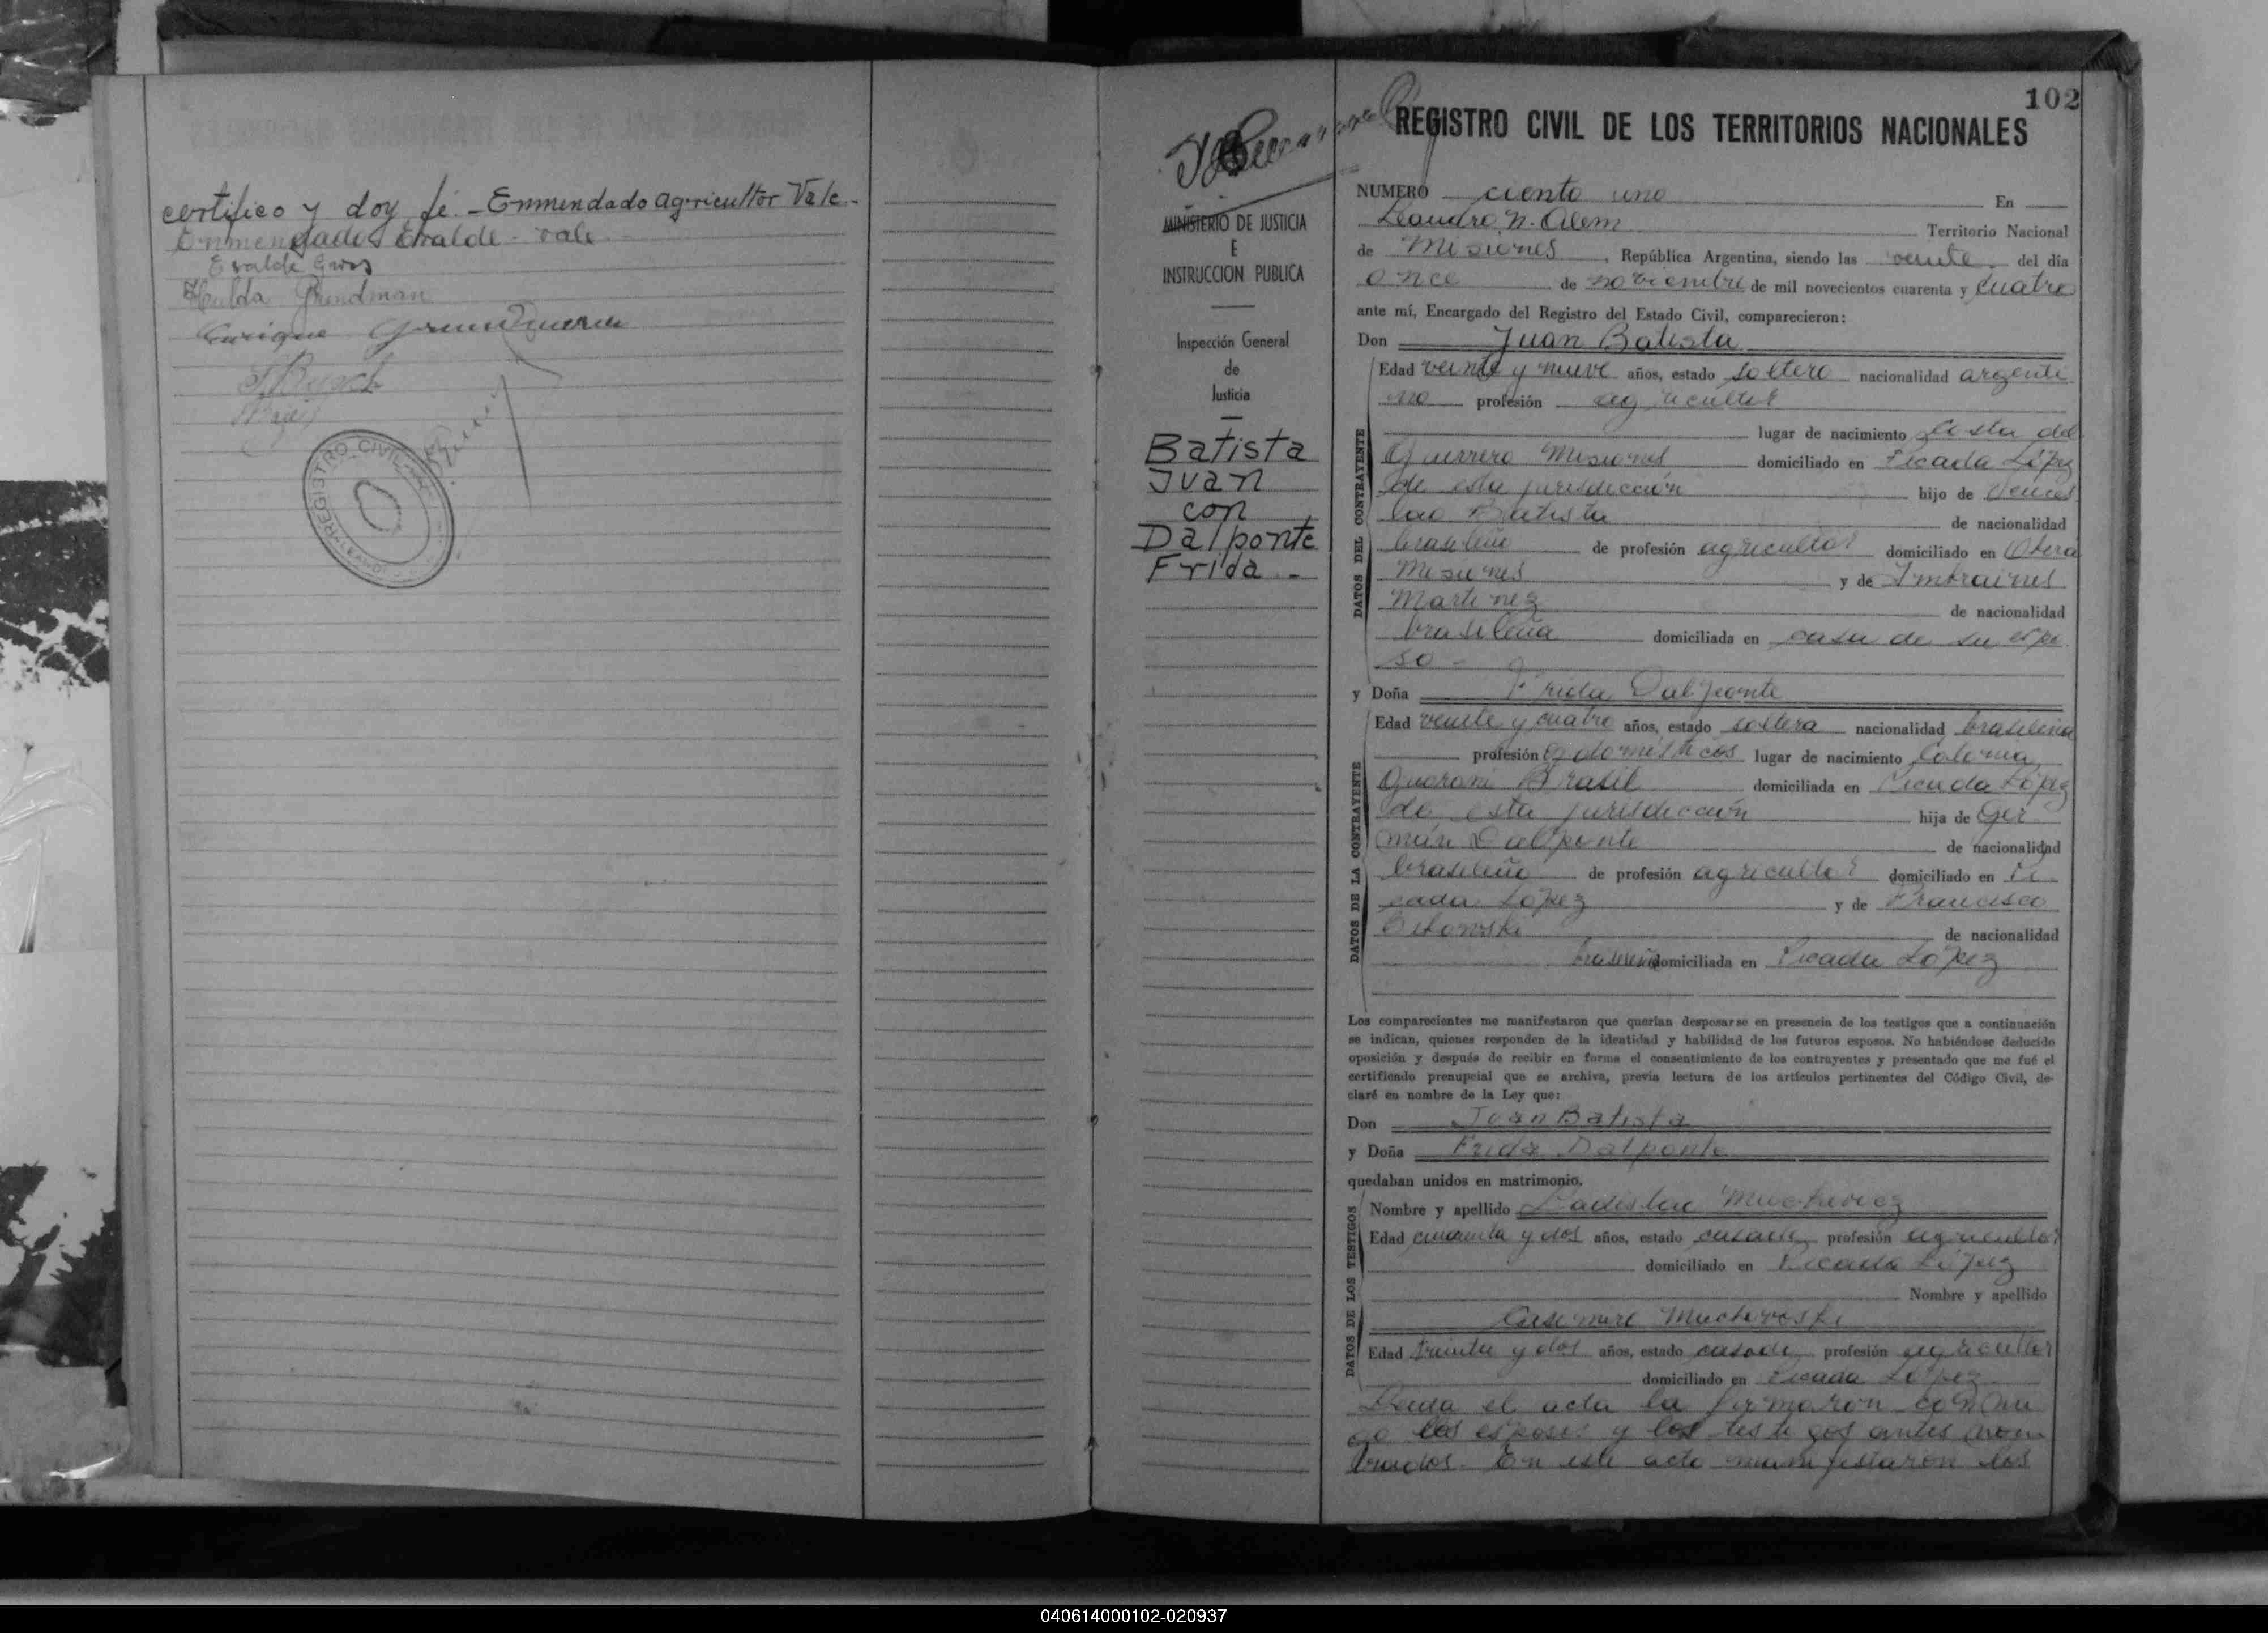 certifico y doy fe. - Enmendado agricultor Vale -
Enmendado Evalde - vale
Evalde
Hulda Grundman
Enrique
REGISTRO CIVIL
MINISTERIO DE JUSTICIA
E
INSTRUCCION PUBLICA
Inspección General
de
Justicia
Batista
Juan
con
Dalponte
Frida -
102
REGISTRO CIVIL DE LOS TERRITORIOS NACIONALES
NUMERO ciento uno En
Leandro N. Alem Territorio Nacional
de Misiones, República Argentina, siendo las veinte del día
once de noviembre de mil novecientos cuarenta y cuatro
ante mí, Encargado del Registro del Estado Civil, comparecieron:
Don Juan Batista
DATOS DEL CONTRAYENTE
Edad veinte y nueve años, estado soltero nacionalidad argenti
no profesión agricultor
lugar de nacimiento Costa del
Guerrero Misiones domiciliado en Picada López
de esta jurisdicción hijo de Vences
lao Batista de nacionalidad
brasileño de profesión agricultor domiciliado en Oberá
Misiones y de
Martinez de nacionalidad
brasileña domiciliada en casa de su espo
so -
y Doña Frida Dalponte
DATOS DE LA CONTRAYENTE
Edad veinte y cuatro años, estado soltera nacionalidad brasileña
profesión q domésticos lugar de nacimiento Colonia
Guarani Brasil domiciliada en Picada López
de esta jurisdicción hija de Ger
mán Dalponte de nacionalidad
brasileño de profesión agricultor domiciliado en Pi
cada López y de Francisca
de nacionalidad
brasileña domiciliada en Picada López
Los comparecientes me manifestaron que querían desposarse en presencia de los testigos que a continuación
se indican, quienes responden de la identidad y habilidad de los futuros esposos. No habiéndose deducido
oposición y después de recibir en forma el consentimiento de los contrayentes y presentado que me fué el
certificado prenupcial que se archiva, previa lectura de los artículos pertinentes del Código Civil, de-
claré en nombre de la Ley que:
Don Juan Batista
y Doña Frida Dalponte
quedaban unidos en matrimonio.
DATOS DE LOS TESTIGOS
Nombre y apellido Ladislao
Edad cuarenta y dos años, estado casado profesión agricultor
domiciliado en Picada López
Nombre y apellido
Casimiro
Edad treinta y dos años, estado casado profesión agricultor
domiciliado en Picada López
Leída el acta la firmaron conmi
go los esposos y los testigos antes nom
brados. En este acto manifestaron los
040614000102-020937